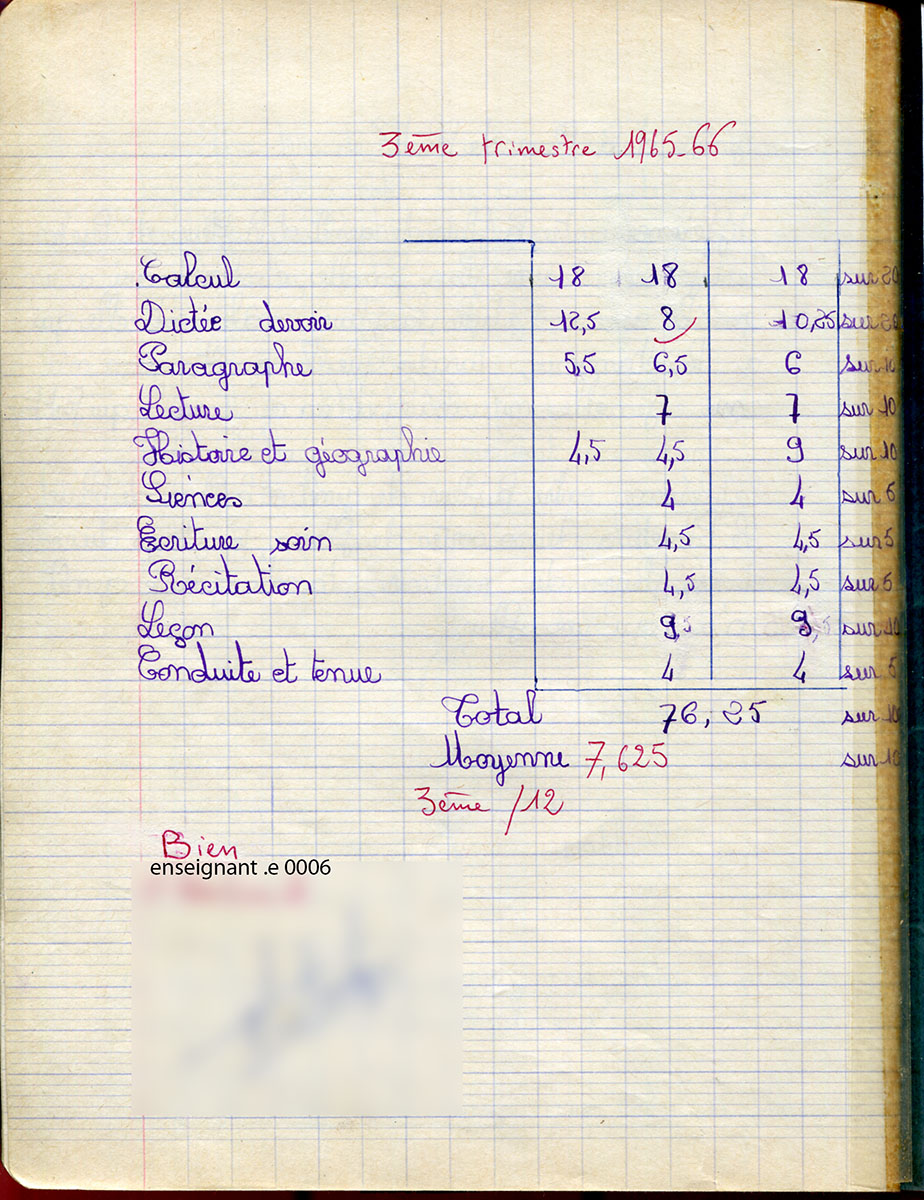 3ème trimestre 1965-66
Calcul 18 18 18 sur 20
Dictée devoir 12,5 8 10,25 sur 20
Paragraphe 5,5 6,5 6 sur 10
Lecture 7 7 sur 10
Histoire et géographie 4,5 4,5 9 sur 10
Siences 4 4 sur 5
Ecriture soin 4,5 4,5 sur 5
Récitation 4,5 4,5 sur 5
Leçon 9 9 sur 10
Conduite et tenue 4 4 sur 5
Total 76,25 sur
Moyenne 7,625 sur 10
3ème /12
Bien
enseignant .e 0006